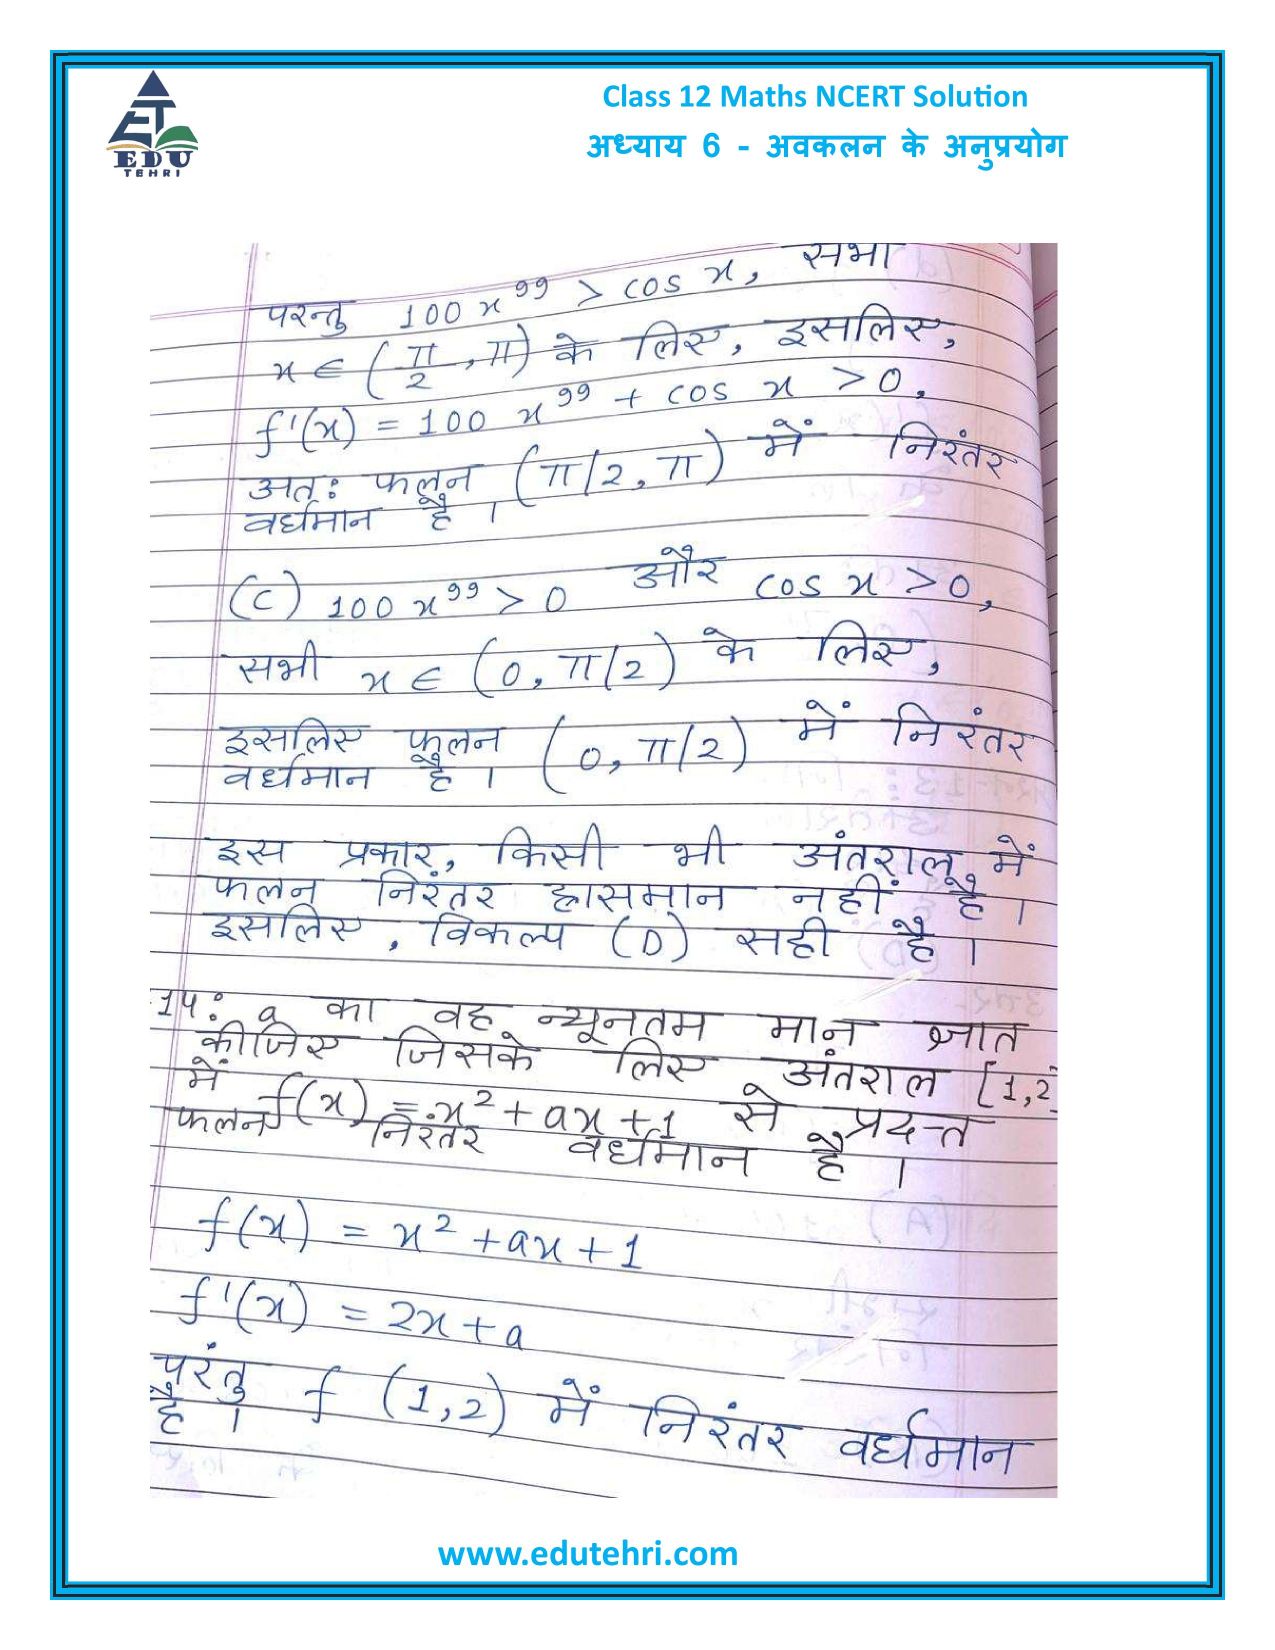 ET
EDU
TEHRI
Class 12 Maths NCERT Solution
अध्याय 6 - अवकलन के अनुप्रयोग
परन्तु 100x⁹⁹ > cos x, सभी
x ∈ (π/2, π) के लिए, इसलिए,
f'(x) = 100 x⁹⁹ + cos x > 0.
अत: फलन (π/2, π) में निरंतर
वर्धमान है ।
(C) 100x⁹⁹ > 0 और cos x > 0,
सभी x ∈ (0, π/2) के लिए,
इसलिए फलन (0, π/2) में निरंतर
वर्धमान है ।
इस प्रकार, किसी भी अंतराल में
फलन निरंतर ह्रासमान नहीं है ।
इसलिए, विकल्प (D) सही है ।
14: a का वह न्यूनतम मान ज्ञात
कीजिए जिसके लिए अंतराल [1,2]
में f(x) = x² + ax + 1 से प्रदत्त
फलन निरंतर वर्धमान है ।
f(x) = x² + ax + 1
f'(x) = 2x + a
परंतु f (1,2) में निरंतर वर्धमान
है ।
www.edutehri.com